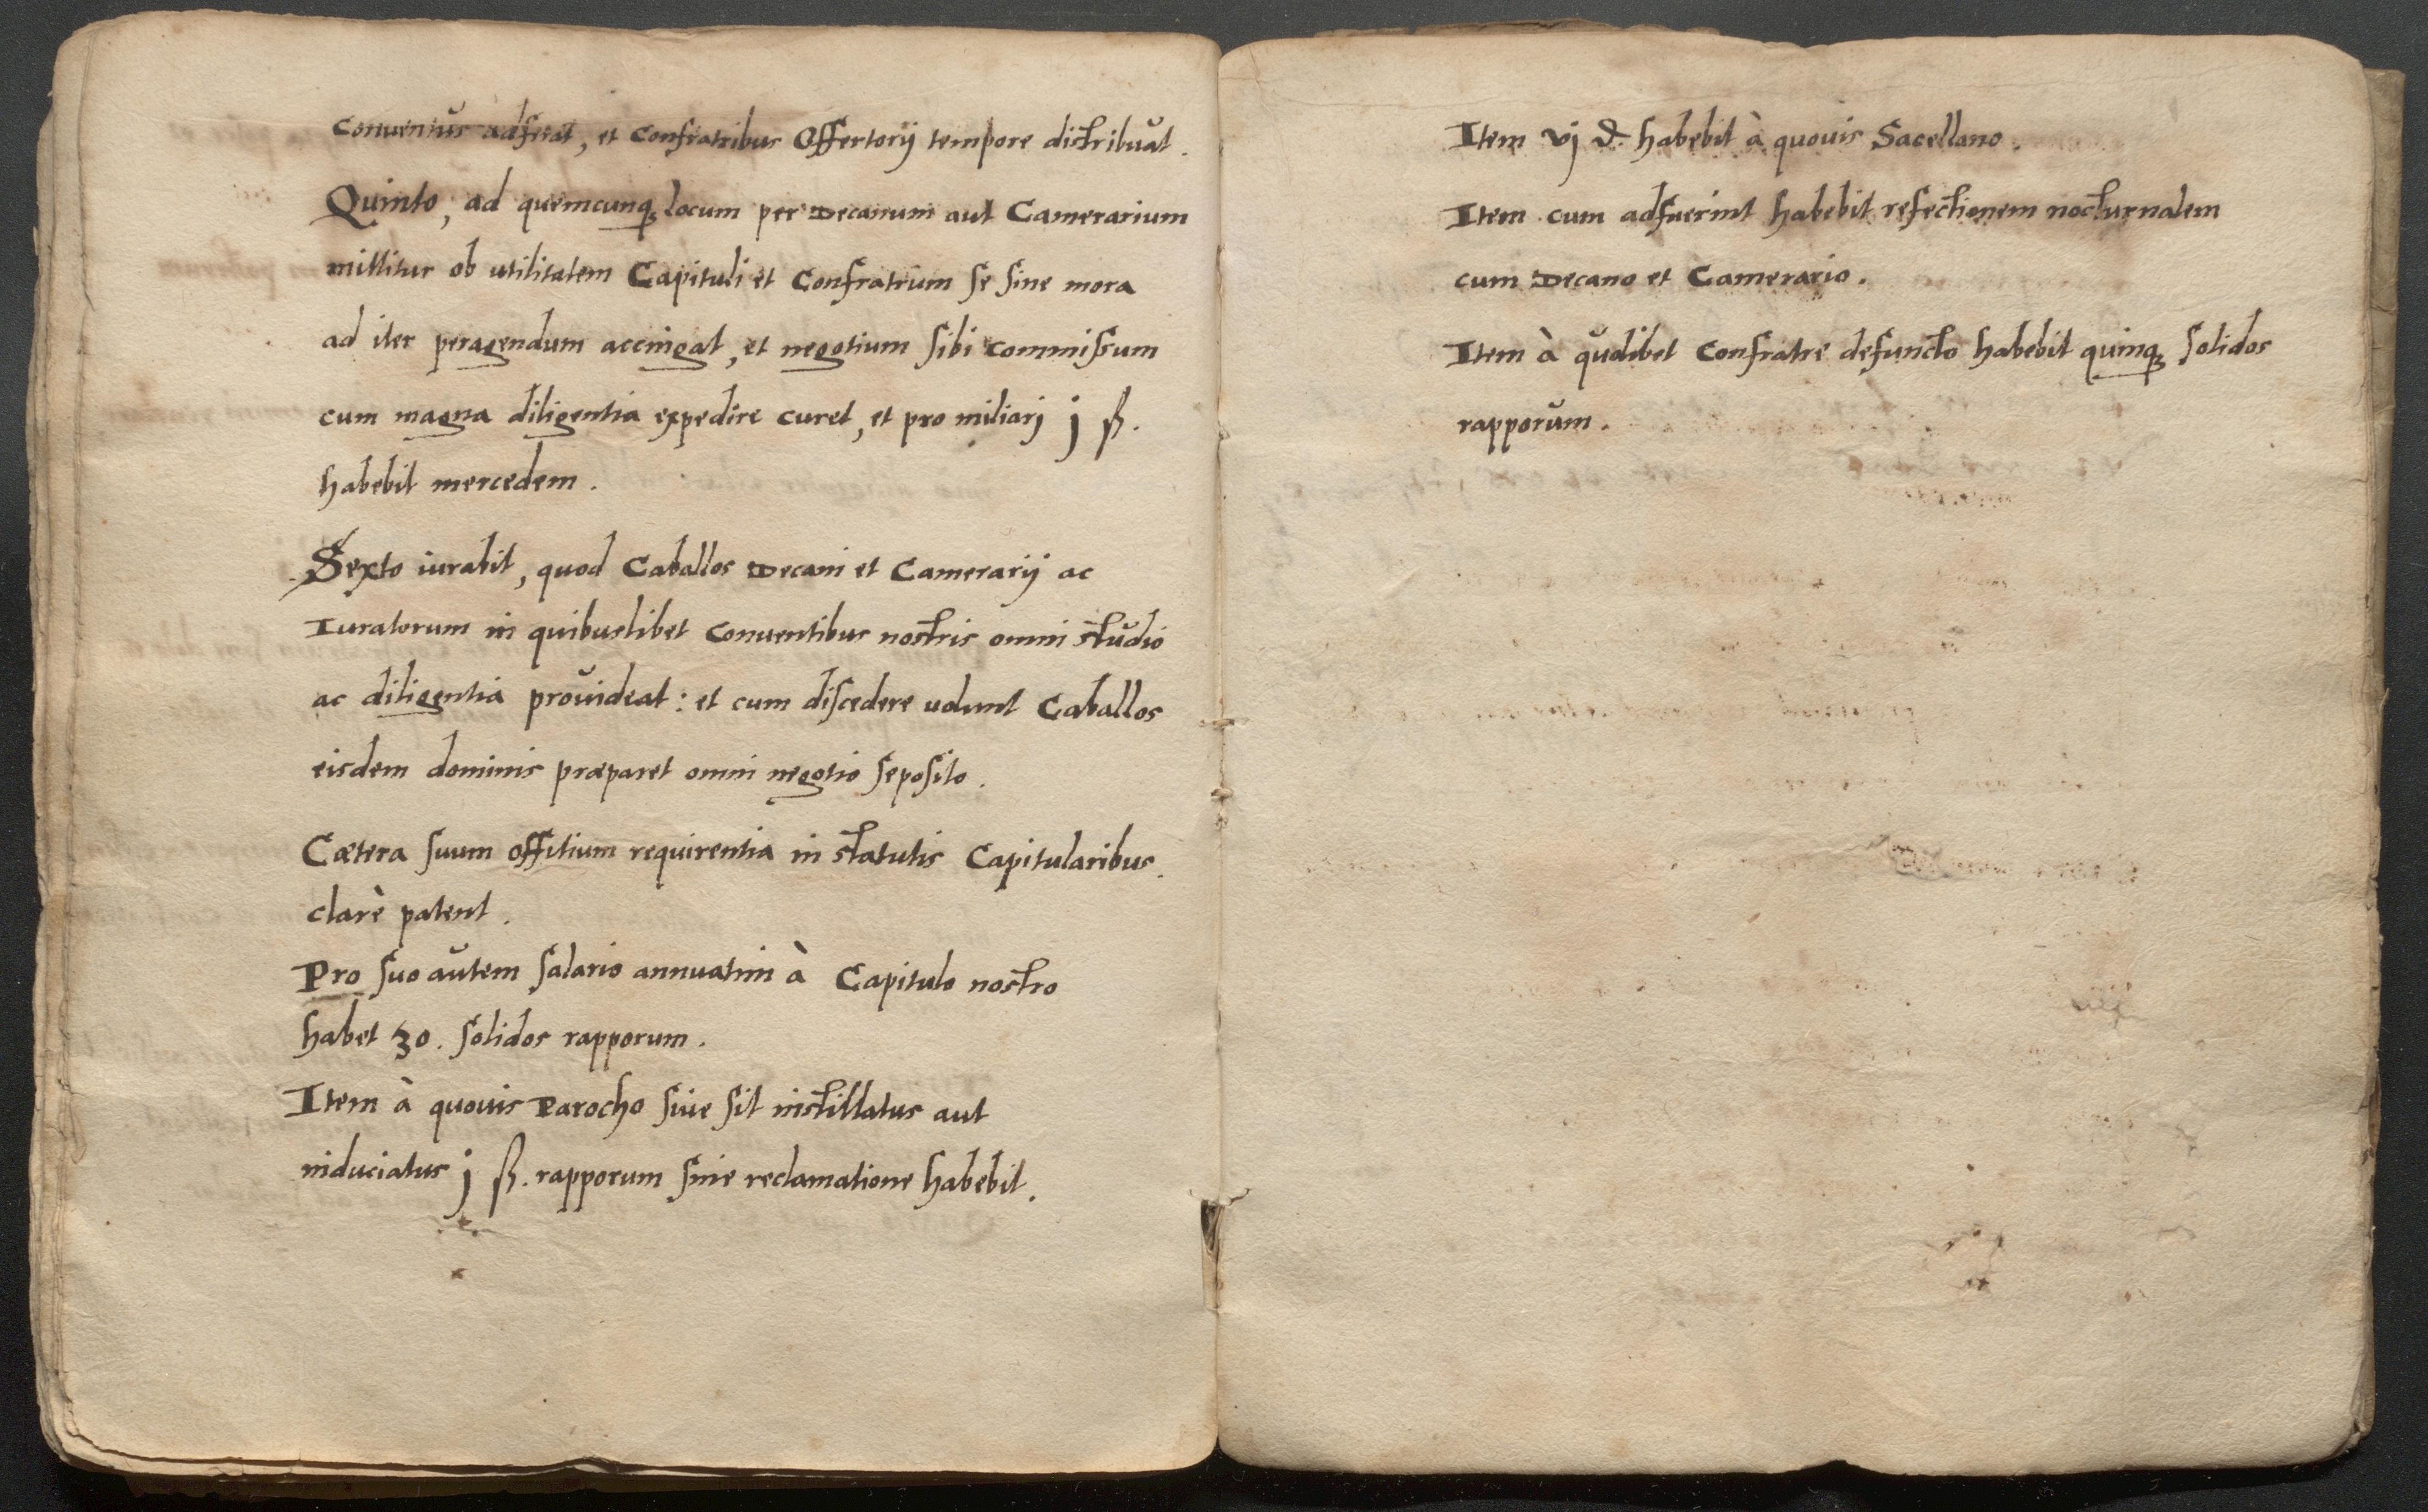 Conuentus adferat, et Confratribus Offertorij tempore distribuat.
Quinto, ad quemcunq; locum per Decanum aut Camerarium
mittitur ob utilitatem Capituli et Confratrum se sine mora
ad iter peragendum accingat, et negotium sibi commissum
cum magna diligentia expedire curet, et pro miliari j ß.
habebit mercedem.
Sexto iurabit, quod Caballos Decani et Camerarij ac
Iuratorum in quibuslibet Conuentibus nostris omni studio
ac diligentia prouideat: et cum discedere uolunt Caballos
eisdem dominis præparet omni negotio seposito.
Cætera suum offitium requirentia in statutis Capitularibus
clarè patent.
Pro suo autem salario annuatim à Capitulo nostro
habet 30. solidos rapporum.
Item à quouis Parocho siue sit instillatus aut
induciatus j ß. rapporum sine reclamatione habebit.
Item vj d. habebit à quouis Sacellano.
Item cum adfuerint habebit refectionem nocturnalem
cum Decano et Camerario.
Item à quolibet Confratre defuncto habebit quinq; solidos
rapporum.